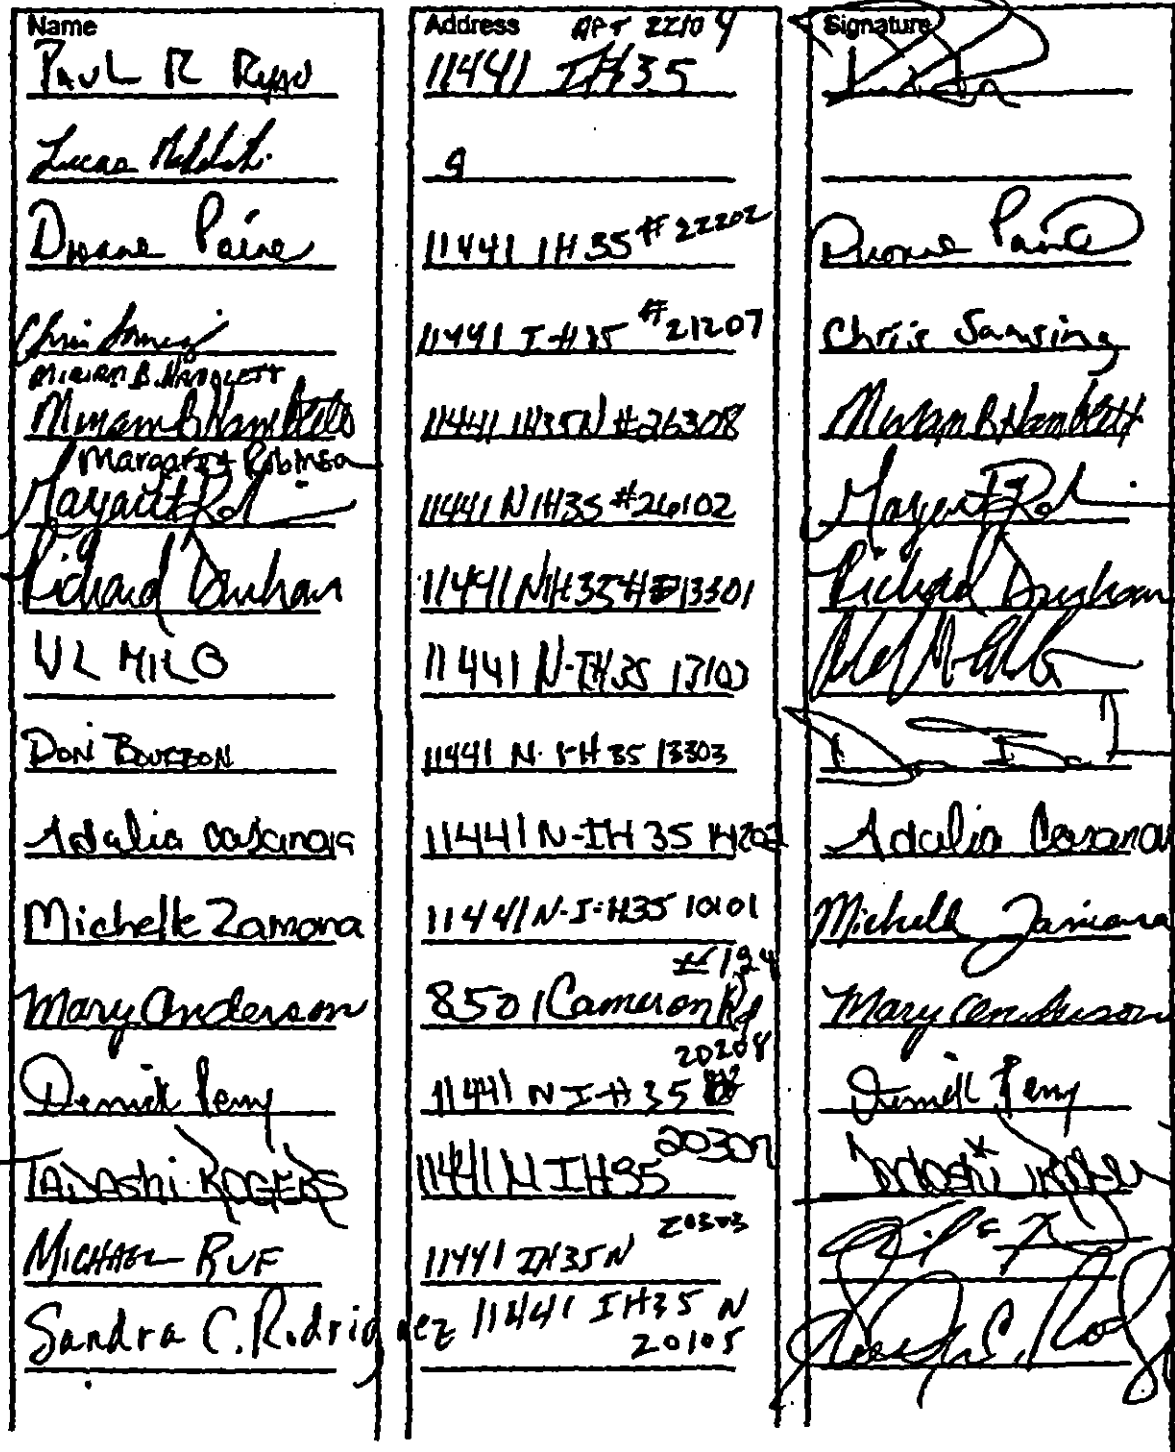 Name Address Signature
APT 22104
PAUL R 11441 IH35
Lucas 9
Duane Paine 11441 IH 35 #22202 Duane Paine
Chris 11441 I-H35 #21207 Chris Sansing
MIRIAM B. HAMBLETT
Miriam B Hamblett 11441 IH35N #26308 Miriam B Hamblett
Margarett Robinson
Margarett Rob 11441 N IH35 #26102 Margarett Rob
Richard Dunham 11441 N IH 35 # 13301 Richard Dunham
VL MILO 11441 N-IH35 13103
DON BOURBON 11441 N. I-H 35 13303
Adalia Casanova 11441 N-IH 35 14202 Adalia Casanova
Michelle Zamora 11441 N-I-H35 10101 Michelle Zamora
#124
Mary Anderson 8501 Cameron Rd Mary Anderson
20208
Derrick Perry 11441 N I-H 35 Derrick Perry
TADASHI ROGERS 11441 N IH35 Tadashi Rogers
20303
MICHAEL RUF 11441 IH35N
Sandra C. Rodriguez 11441 IH35 N
20105